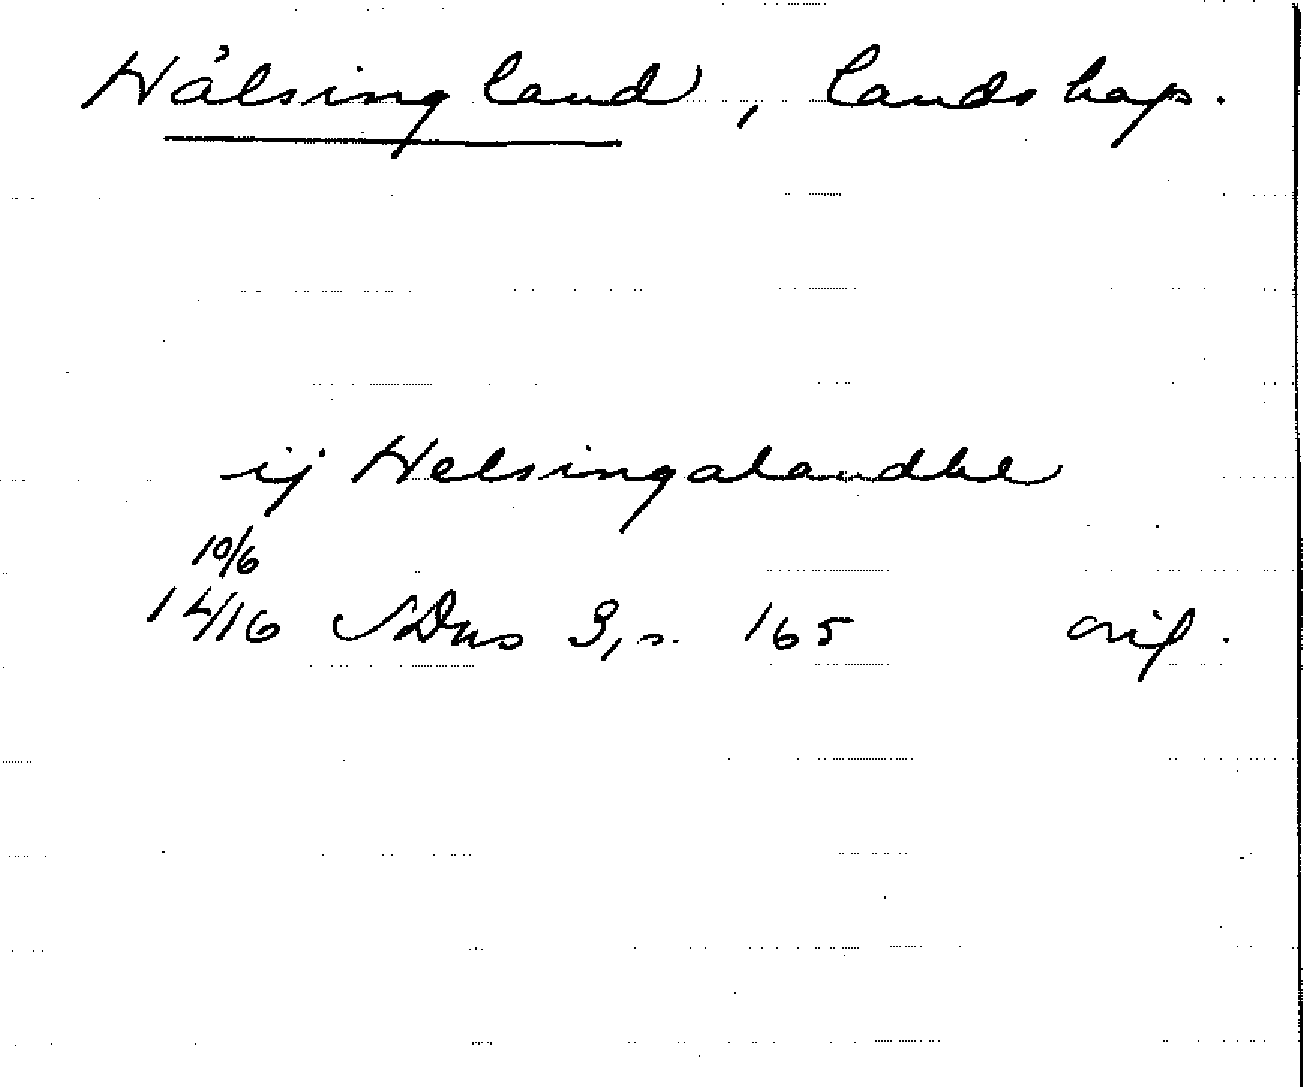 Hälsingland, landskap.
ij Helsingalandhe
10/6
1416 SDns 3, s. 165 orig.